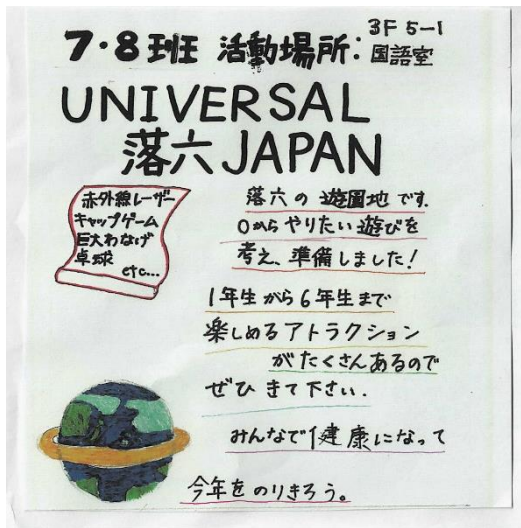 7・8班 活動場所: 3F 5-1
国語室
UNIVERSAL
落六 JAPAN
赤外線レーザー
キャップゲーム
巨大わなげ
卓球
etc...
落六の遊園地です.
0からやりたい遊びを
考え、準備しました!
1年生から6年生まで
楽しめるアトラクション
がたくさんあるので
ぜひきて下さい.
みんなで健康になって
今年をのりきろう。